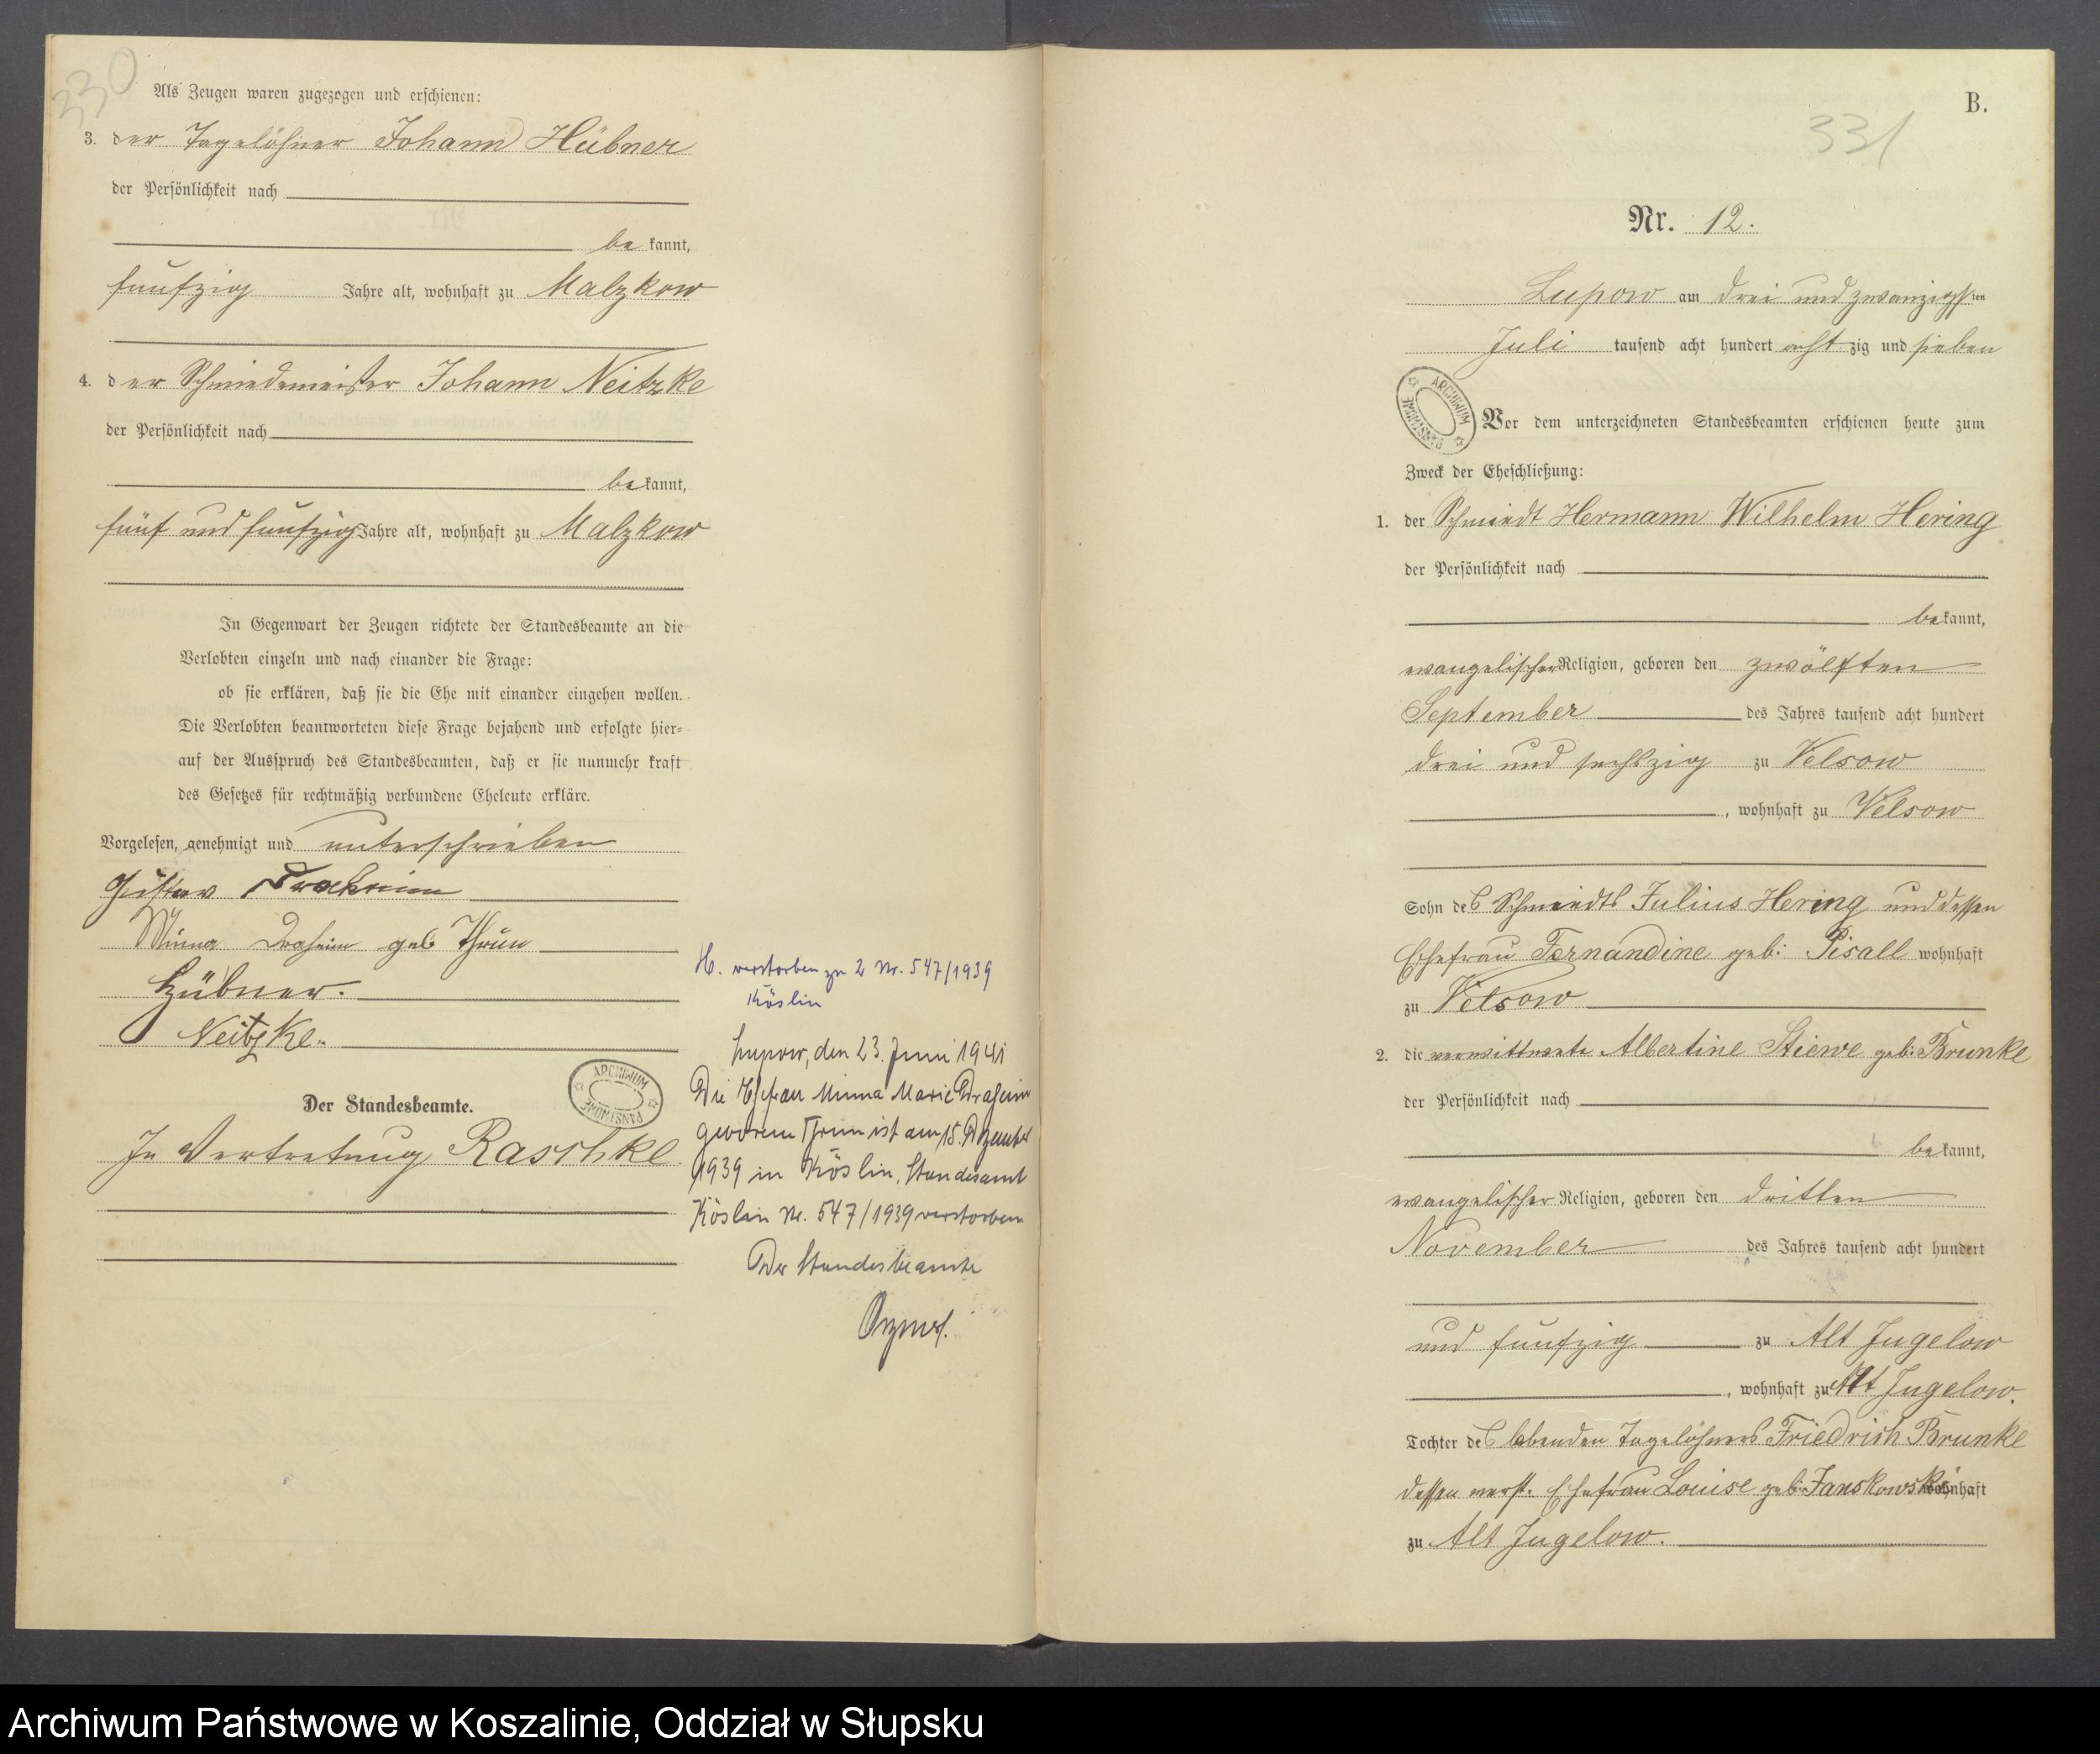 330
Als Zeugen waren zugezogen und erschienen:
3. der Tagelöhner Johann Hübner
der Persönlichkeit nach
be kannt,
funfzig Jahre alt, wohnhaft zu Malzkow
4. der Schmiedemeister Johann Neitzke
der Persönlichkeit nach
be kannt,
fünf und funfzig Jahre alt, wohnhaft zu Malzkow
In Gegenwart der Zeugen richtete der Standesbeamte an die
Verlobten einzeln und nach einander die Frage:
ob sie erklären, daß sie die Ehe mit einander eingehen wollen.
Die Verlobten beantworteten diese Frage bejahend und erfolgte hier-
auf der Ausspruch des Standesbeamten, daß er sie nunmehr kraft
des Gesetzes für rechtmäßig verbundene Eheleute erkläre.
Vorgelesen, genehmigt und unterschrieben
Gustav Draheim
Minna Draheim geb Thrun
Hübner.
Neitzke.
Der Standesbeamte.
In Vertretung Raschke
ARCHIWUM PAŃSTWOWE
H. verstorben zu 2 Nr. 547/1939
Köslin
Lupow, den 23. Juni 1941
Die Ehefrau Minna Marie Draheim
geborene Thrun ist am 15. Dezember
1939 in Köslin, Standesamt
Köslin Nr. 547/1939 verstorben
Der Standesbeamte
B.
331
Nr. 12.
Lupow am drei und zwanzigsten
Juli tausend acht hundert achtzig und sieben
ARCHIWUM PAŃSTWOWE
Vor dem unterzeichneten Standesbeamten erschienen heute zum
Zweck der Eheschließung:
1. der Schmiedt Hermann Wilhelm Hering
der Persönlichkeit nach
be kannt,
evangelischer Religion, geboren den zwölften
September des Jahres tausend acht hundert
drei und sechszig zu Velsow
, wohnhaft zu Velsow
Sohn des Schmiedts Julius Hering und dessen
Ehefrau Fernandine geb: Pisall wohnhaft
zu Velsow
2. die verwittwete Albertine Stiewe geb: Brunke
der Persönlichkeit nach
be kannt,
evangelischer Religion, geboren den dritten
November des Jahres tausend acht hundert
und funfzig zu Alt Jugelow
, wohnhaft zu Alt Jugelow.
Tochter des lebenden Tagelöhners Friedrich Brunke
dessen verst. Ehefrau Louise geb: Janskowski wohnhaft
zu Alt Jugelow.
Archiwum Państwowe w Koszalinie, Oddział w Słupsku